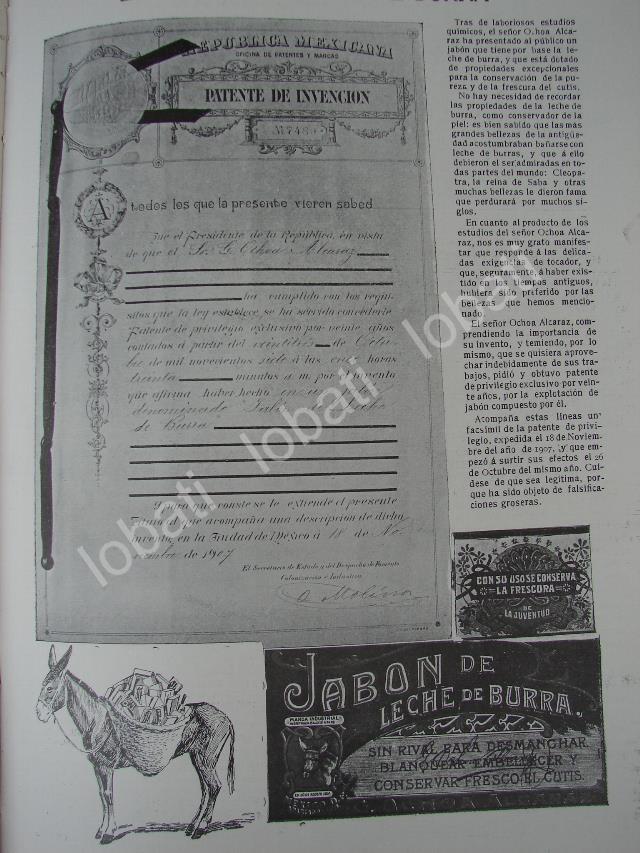 REPUBLICA MEXICANA
OFICINA DE PATENTES Y MARCAS
PATENTE DE INVENCION
A todos los que la presente vieren sabed
Que el Presidente de la República, en vista
de que el Sr. G. Ochoa Alcaraz
ha cumplido con los requi-
sitos que la ley establece, se ha servido concederle
Patente de privilegio exclusivo por veinte años
contados á partir del
de Octu-
bre de mil novecientos siete á las once horas
treinta minutos a.m. por el invento
que afirma haber hecho
denominado Jabón de Leche
de Burra
Y para que conste se le extiende el presente
Título al que acompaña una descripción de dicho
invento, en la Ciudad de México á 18 de No-
viembre de 1907
El Secretario de Estado y del Despacho de Fomento
Colonización e Industria
O. Molina
Tras de laboriosos estudios
químicos, el señor Ochoa Alca-
raz ha presentado al público un
jabón que tiene por base la le-
che de burra, y que está dotado
de propiedades excepcionales
para la conservación de la pu-
reza y de la frescura del cutis.
No hay necesidad de recordar
las propiedades de la leche de
burra, como conservador de la
piel: es bien sabido que las más
grandes bellezas de la antigüe-
dad acostumbraban bañarse con
leche de burras, y que á ello
debieron el ser admiradas en to-
das partes del mundo: Cleopa-
tra, la reina de Saba y otras
muchas bellezas le dieron fama
que perdurará por muchos si-
glos.
En cuanto al producto de los
estudios del señor Ochoa Alca-
raz, nos es muy grato manifes-
tar que responde á las delica-
das exigencias de tocador, y
que, seguramente, á haber exis-
tido en los tiempos antiguos,
hubiera sido preferido por las
bellezas que hemos mencio-
nado.
El señor Ochoa Alcaraz, com-
prendiendo la importancia de
su invento, y temiendo, por lo
mismo, que se quisiera aprove-
char indebidamente de sus tra-
bajos, pidió y obtuvo patente
de privilegio exclusivo por vein-
te años, por la explotación de
jabón compuesto por él.
Acompaña estas líneas un
facsímil de la patente de privi-
legio, expedida el 18 de Noviem-
bre del año de 1907, y que em-
pezó á surtir sus efectos el 26
de Octubre del mismo año. Cuí-
dese de que sea legítima, por-
que ha sido objeto de falsifica-
ciones groseras.
CON SU USO SE CONSERVA
LA FRESCURA
DE
LA JUVENTUD
JABON DE
LECHE DE BURRA.
MARCA INDUSTRIAL
SIN RIVAL PARA DESMANCHAR
BLANQUEAR EMBELLECER Y
CONSERVAR FRESCO EL CUTIS.
lobati lobati lobati lobati